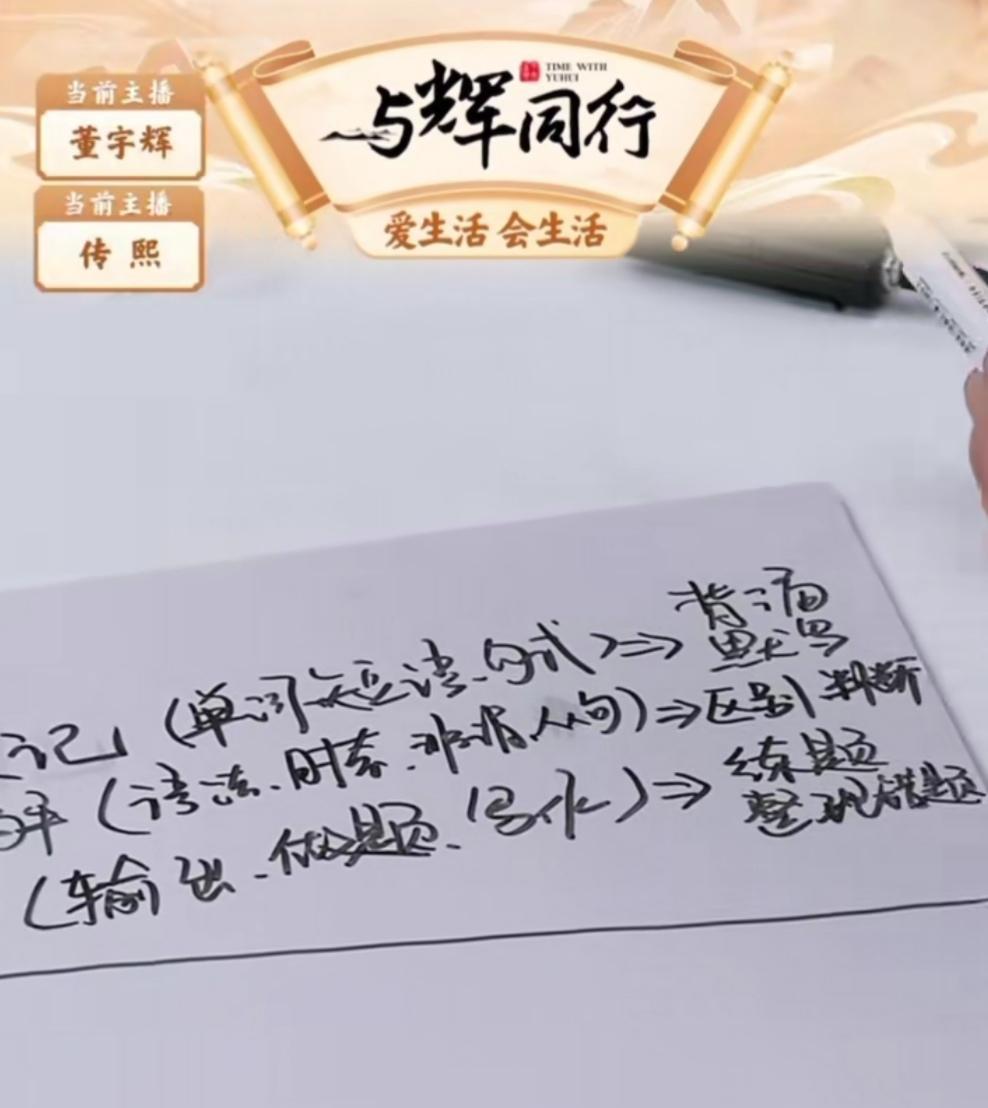 当前主播
董宇辉
当前主播
传熙
与辉同行
TIME WITH
YUHUI
爱生活 会生活
记 (单词、短语、句式) ⇒ 背诵
默写
(语法、时态、非谓、从句) ⇒ 区别 判断
(输出、做题、写作) ⇒ 练题
整理错题